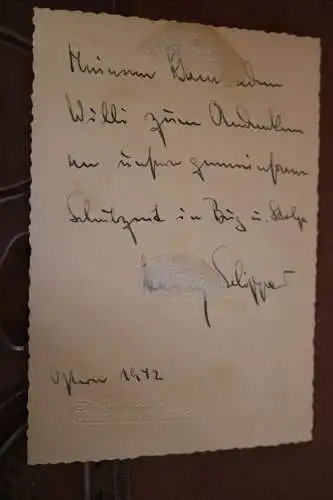 Meinem Kameraden
Willi zum Andenken
an unsere gemeinsame
Schulzeit in Bug u. Stolp
Schipper
Ostern 1942